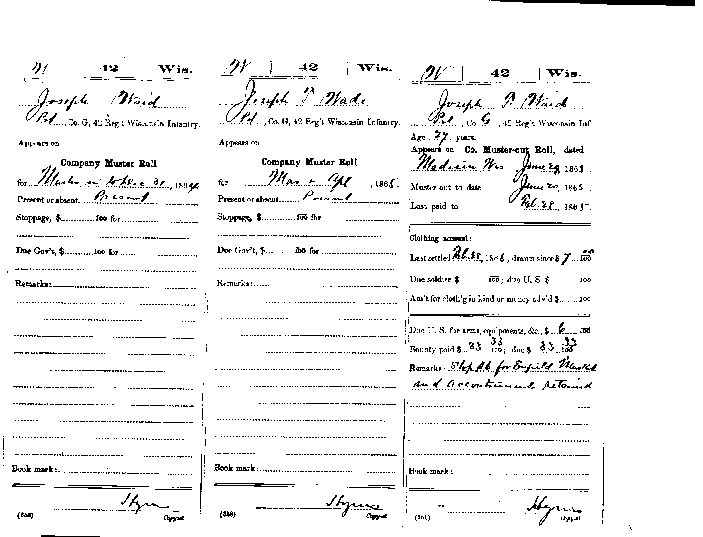 W | 42 | Wis.
Joseph Waid
Pvt., Co. G, 42 Reg't Wisconsin Infantry.
Appears on
Company Muster Roll
for Muster in to Dec 31, 1864.
Present or absent. Present
Stoppage, $ 100 for
Due Gov't, $ 100 for
Remarks:
Book mark:
(358)
Copyist.
W | 42 | Wis.
Joseph P Wade
Pvt., Co. G, 42 Reg't Wisconsin Infantry.
Appears on
Company Muster Roll
for Mar & Apl, 1865.
Present or absent. Present
Stoppage, $ 100 for
Due Gov't, $ 100 for
Remarks:
Book mark:
(358)
Copyist.
W | 42 | Wis.
Joseph P Waid
Pvt, Co. G, 42 Reg't Wisconsin Inf
Age 27 years.
Appears on Co. Muster-out Roll, dated
Madison Wis June 20, 1865.
Muster-out to date June 20, 1865.
Last paid to Feb. 28, 1865.
Clothing account:
Last settled 186 ; drawn since $ 7 100
Due soldier $ 100; due U. S. $ 100
Am't for cloth'g in kind or money adv'd $ 100
Due U. S. for arms, equipments, &c., $ 6 100
Bounty paid $ 33 33/100; due $ 33 33/100
Remarks: Stop $6 for Enfield Musket
and accoutrements retained
Book mark:
Copyist.